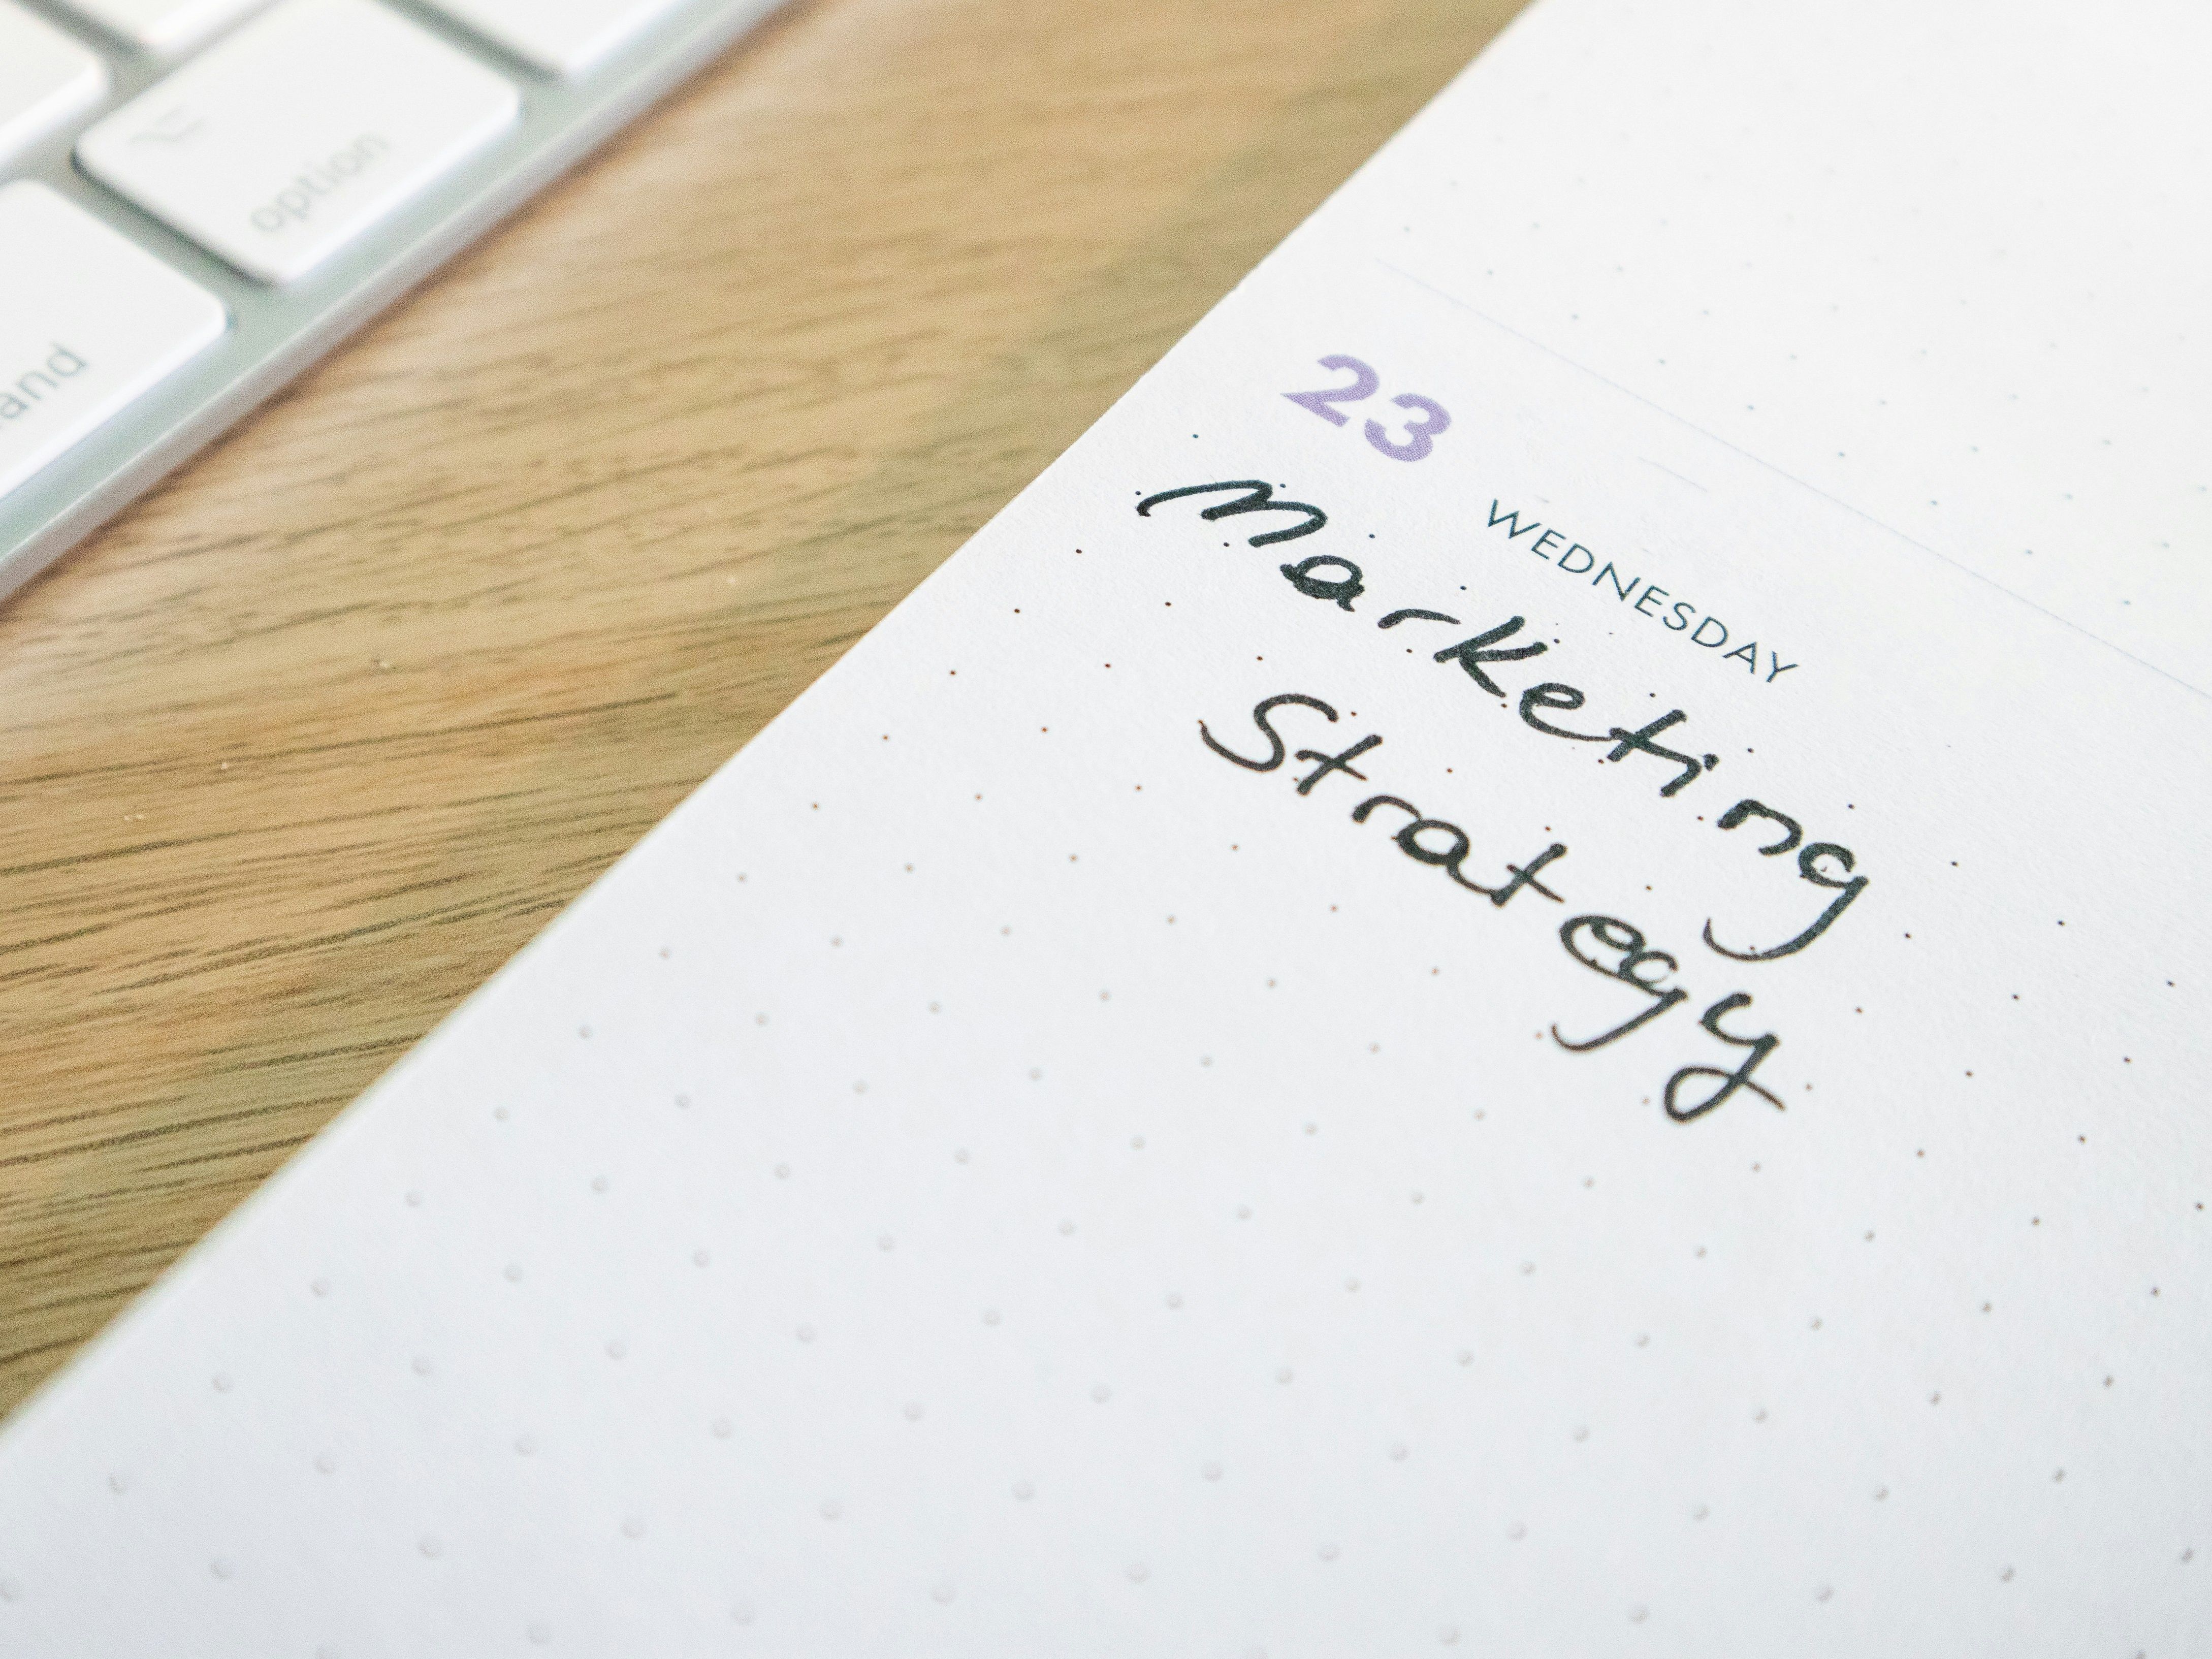 option
and
23
WEDNESDAY
Marketing
Strategy